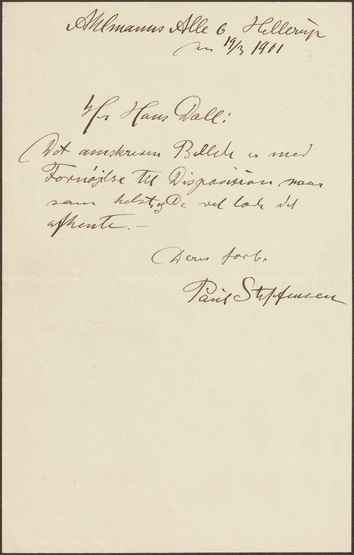 Ahlmanns Alle 6 Hellerup
19/3 1911
Hr Hans Dall:
Det omskrevne Billede er med
Fornøjelse til Disposition naar
som helst De vil lade det
afhente. —
Deres forb.
Paul Steffensen